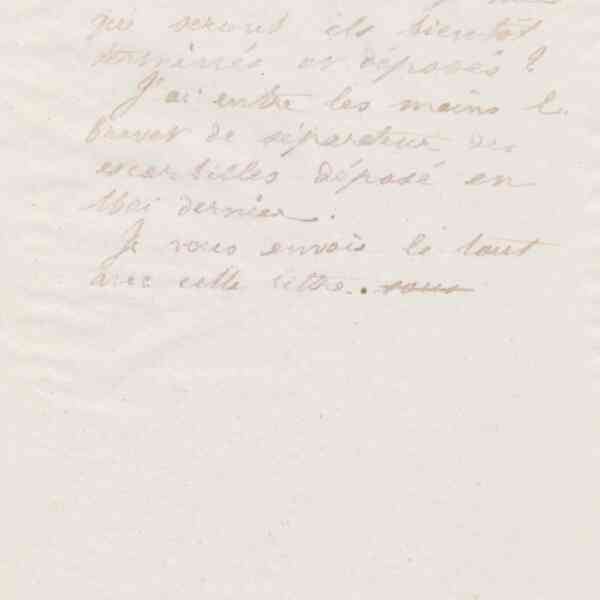 qui seront ils bientôt
terminés et déposés ?
J'ai entre les mains le
brevet de séparateur des
escarbilles déposé en
Mai dernier.
Je vous envoie le tout
avec cette lettre. vous